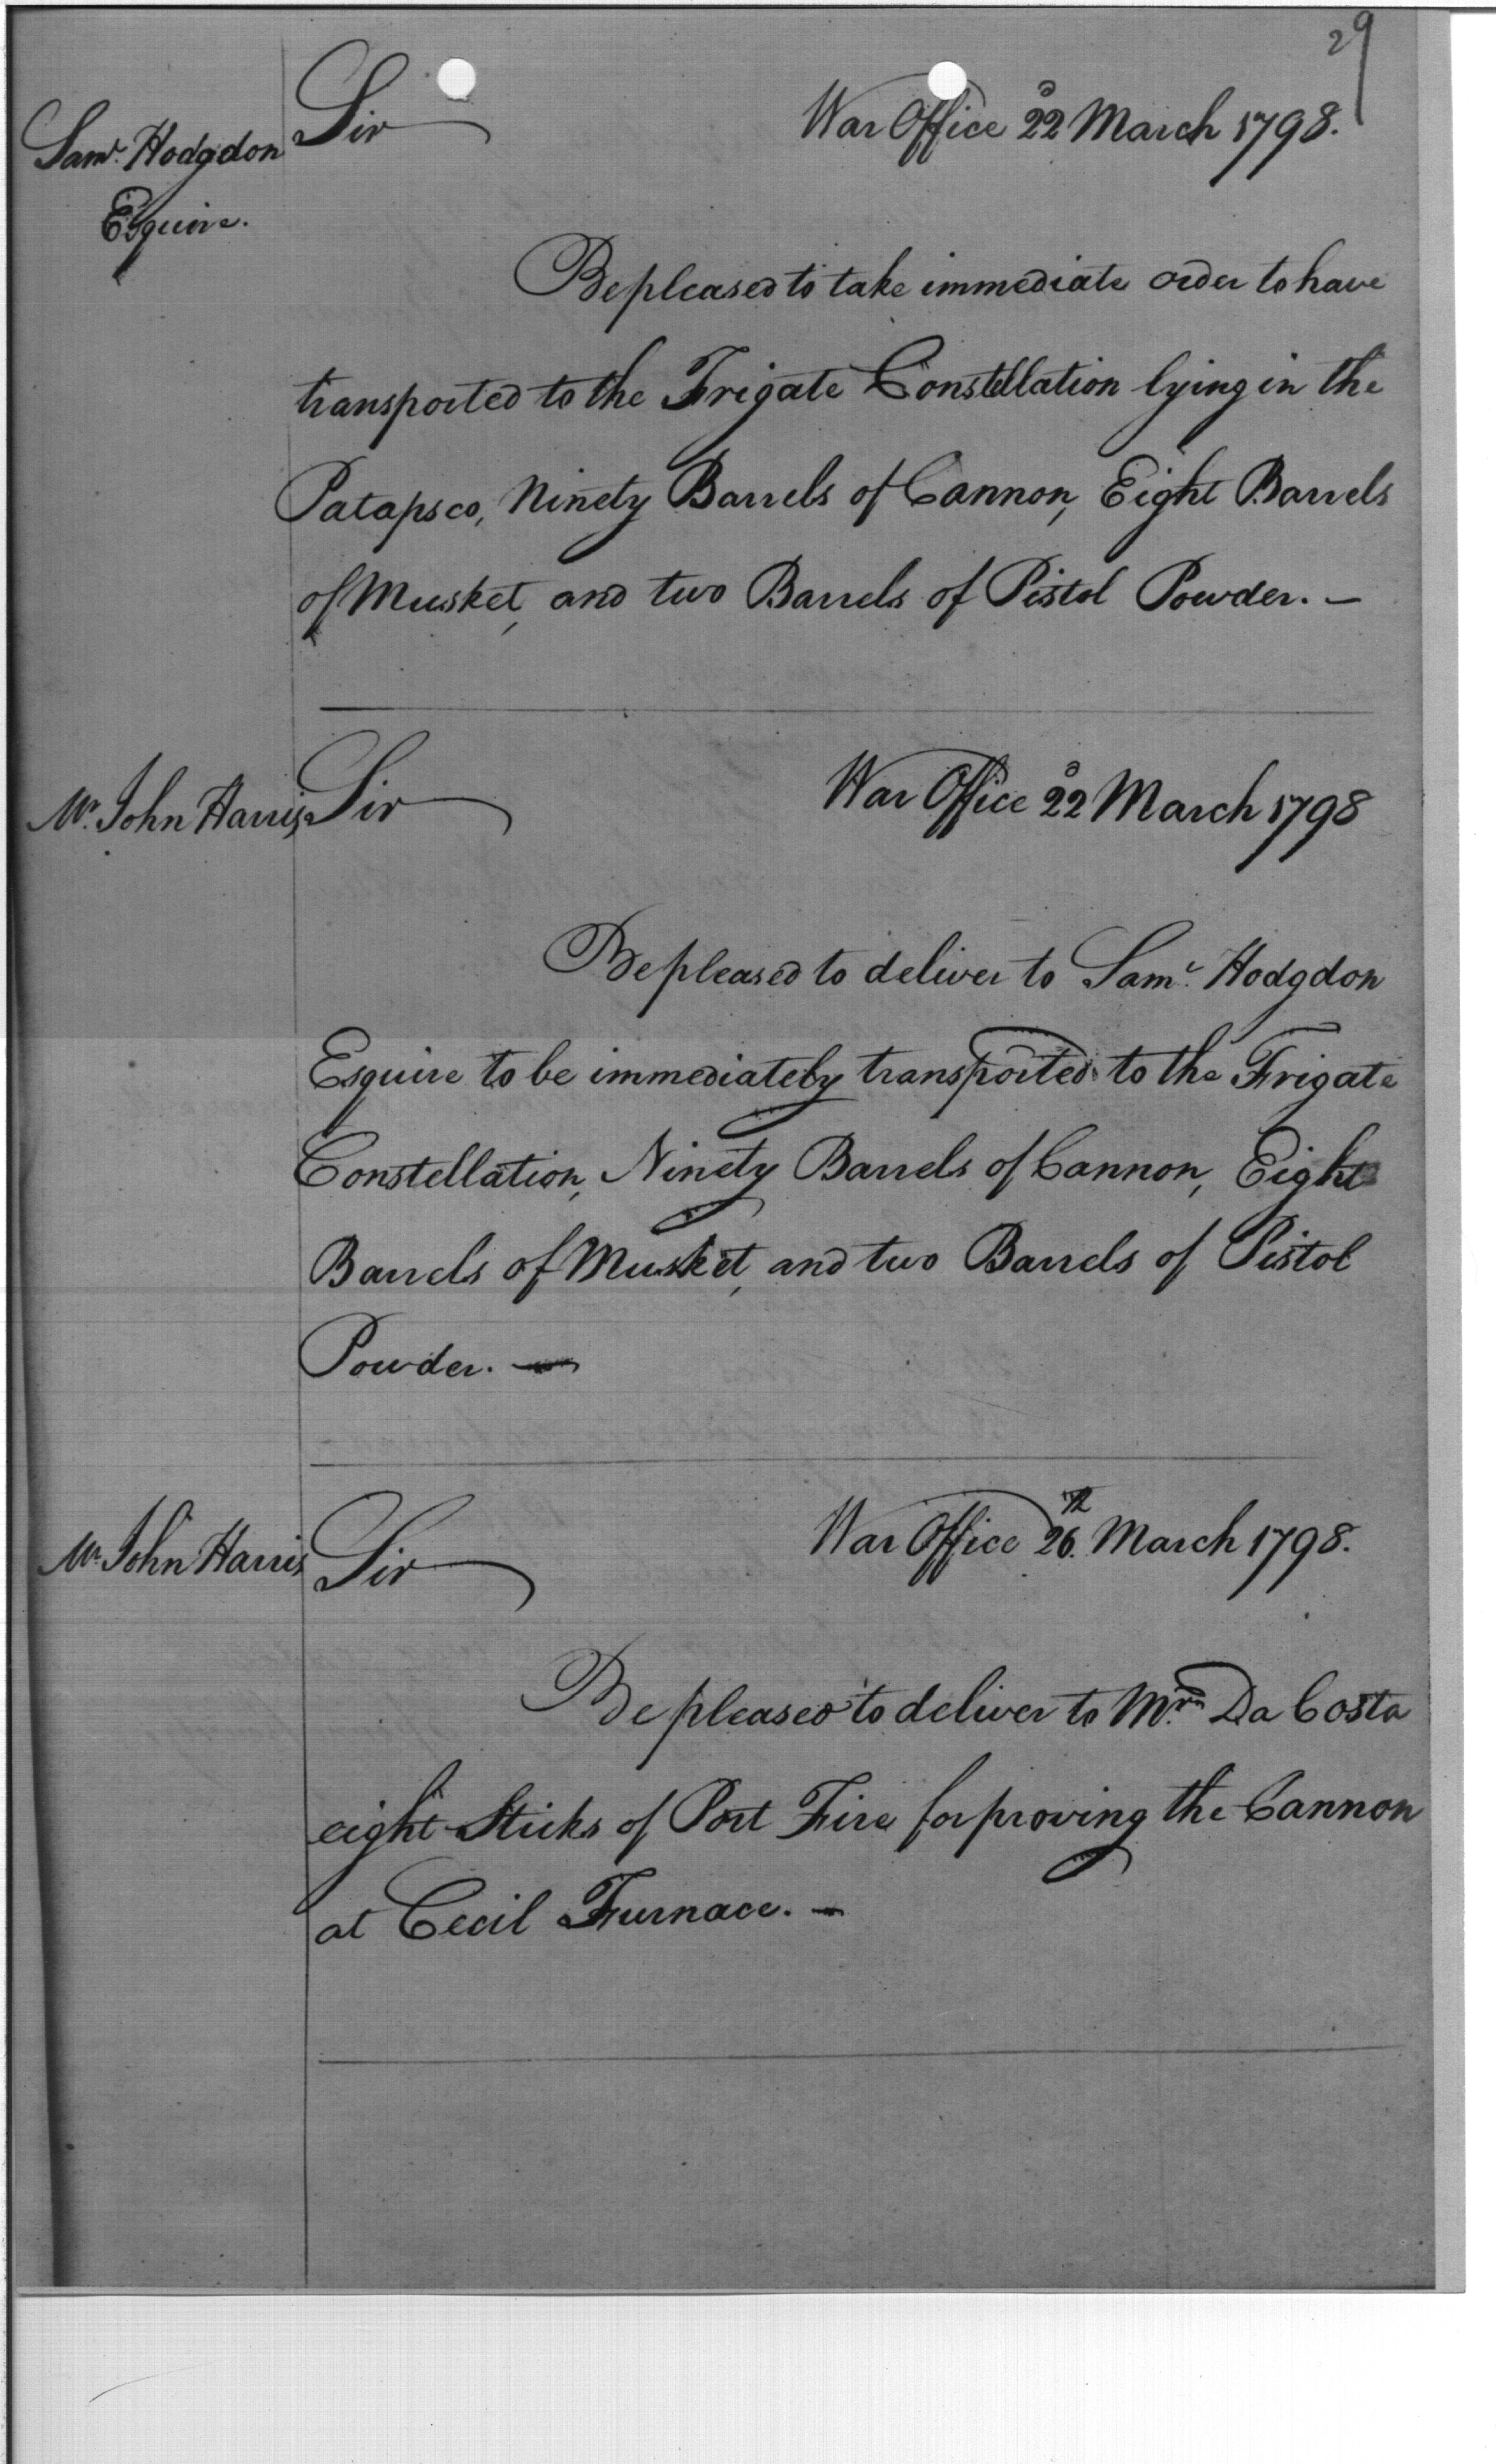 29
Sir War Office 22d March 1798.
Saml. Hodgdon
Esquire.
Be pleased to take immediate order to have
transported to the Frigate Constellation lying in the
Patapsco, Ninety Barrels of Cannon, Eight Barrels
of Musket, and two Barrels of Pistol Powder. —
Mr. John Harris Sir War Office 22d March 1798
Be pleased to deliver to Saml. Hodgdon
Esquire to be immediately transported to the Frigate
Constellation, Ninety Barrels of Cannon, Eight
Barrels of Musket, and two Barrels of Pistol
Powder. —
Mr. John Harris Sir War Office 26th. March 1798.
Be pleased to deliver to Da Costa
eight Sticks of Port Fire for proving the Cannon
at Cecil Furnace. —